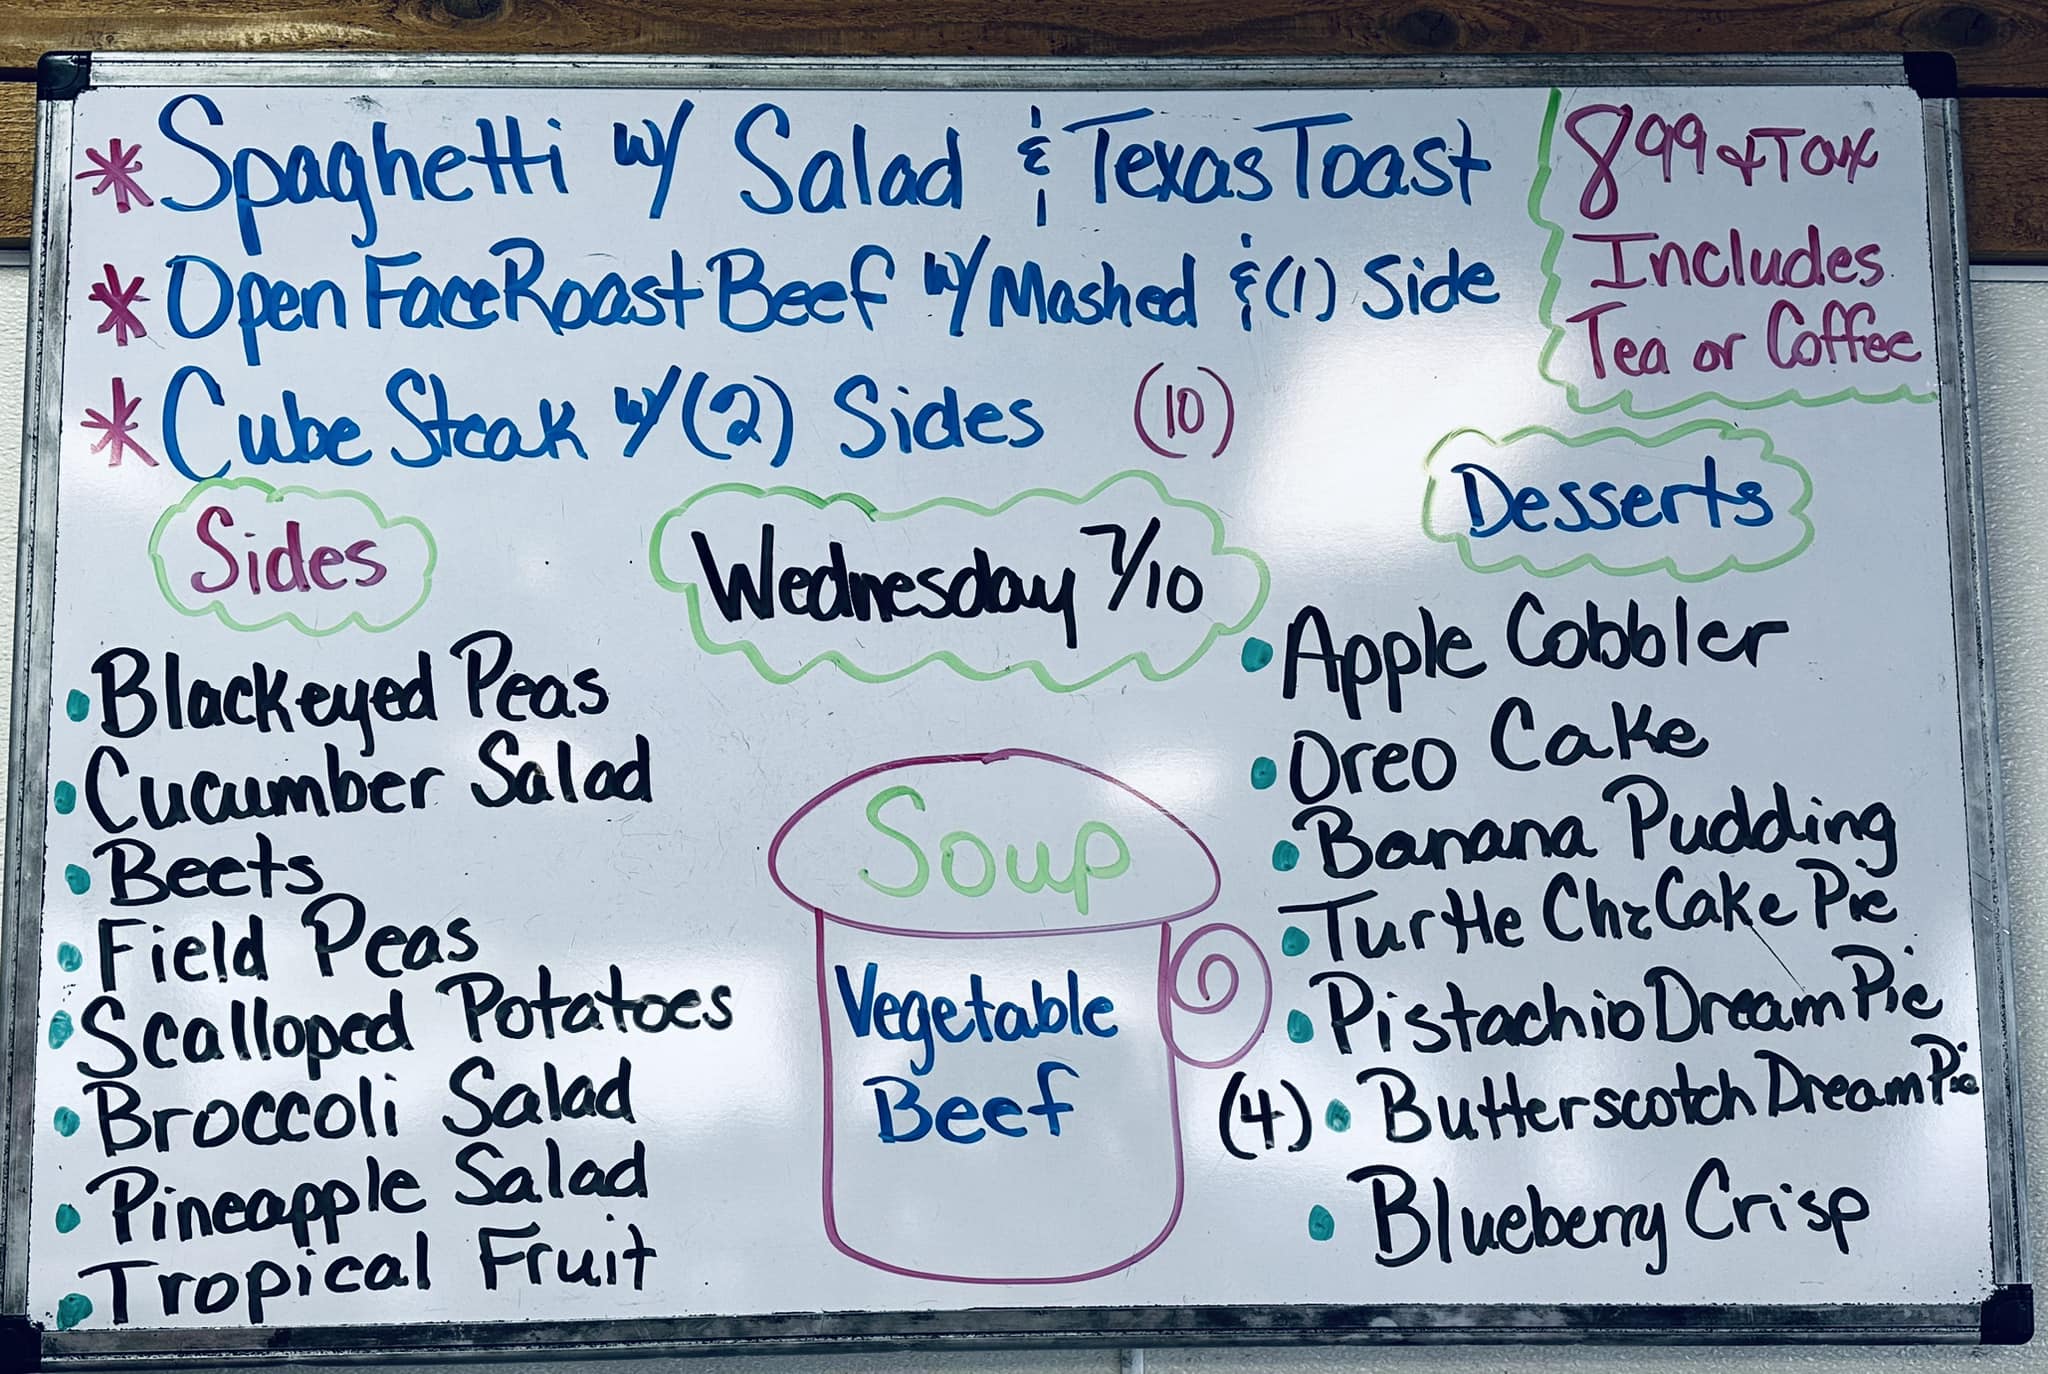 * Spaghetti w/ Salad & Texas Toast
* Open Face Roast Beef w/ Mashed & (1) Side
* Cube Steak w/ (2) Sides (10)
8 99 + Tax
Includes
Tea or Coffee
Sides
• Blackeyed Peas
• Cucumber Salad
• Beets
• Field Peas
• Scalloped Potatoes
• Broccoli Salad
• Pineapple Salad
• Tropical Fruit
Wednesday 7/10
Soup
Vegetable
Beef
Desserts
• Apple Cobbler
• Oreo Cake
• Banana Pudding
• Turtle Chz Cake Pie
• Pistachio Dream Pie
(4) • Butterscotch Dream Pie
• Blueberry Crisp